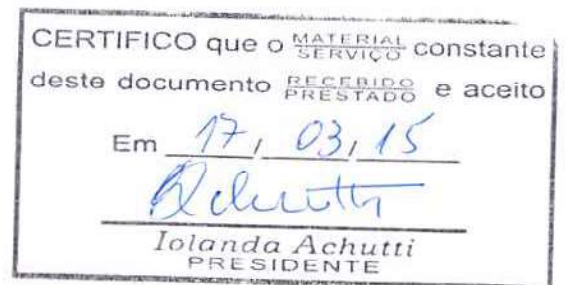 CERTIFICO que o MATERIAL SERVIÇO constante
deste documento RECEBIDO PRESTADO e aceito
Em 17, 03, 15
Achutti
Iolanda Achutti
PRESIDENTE